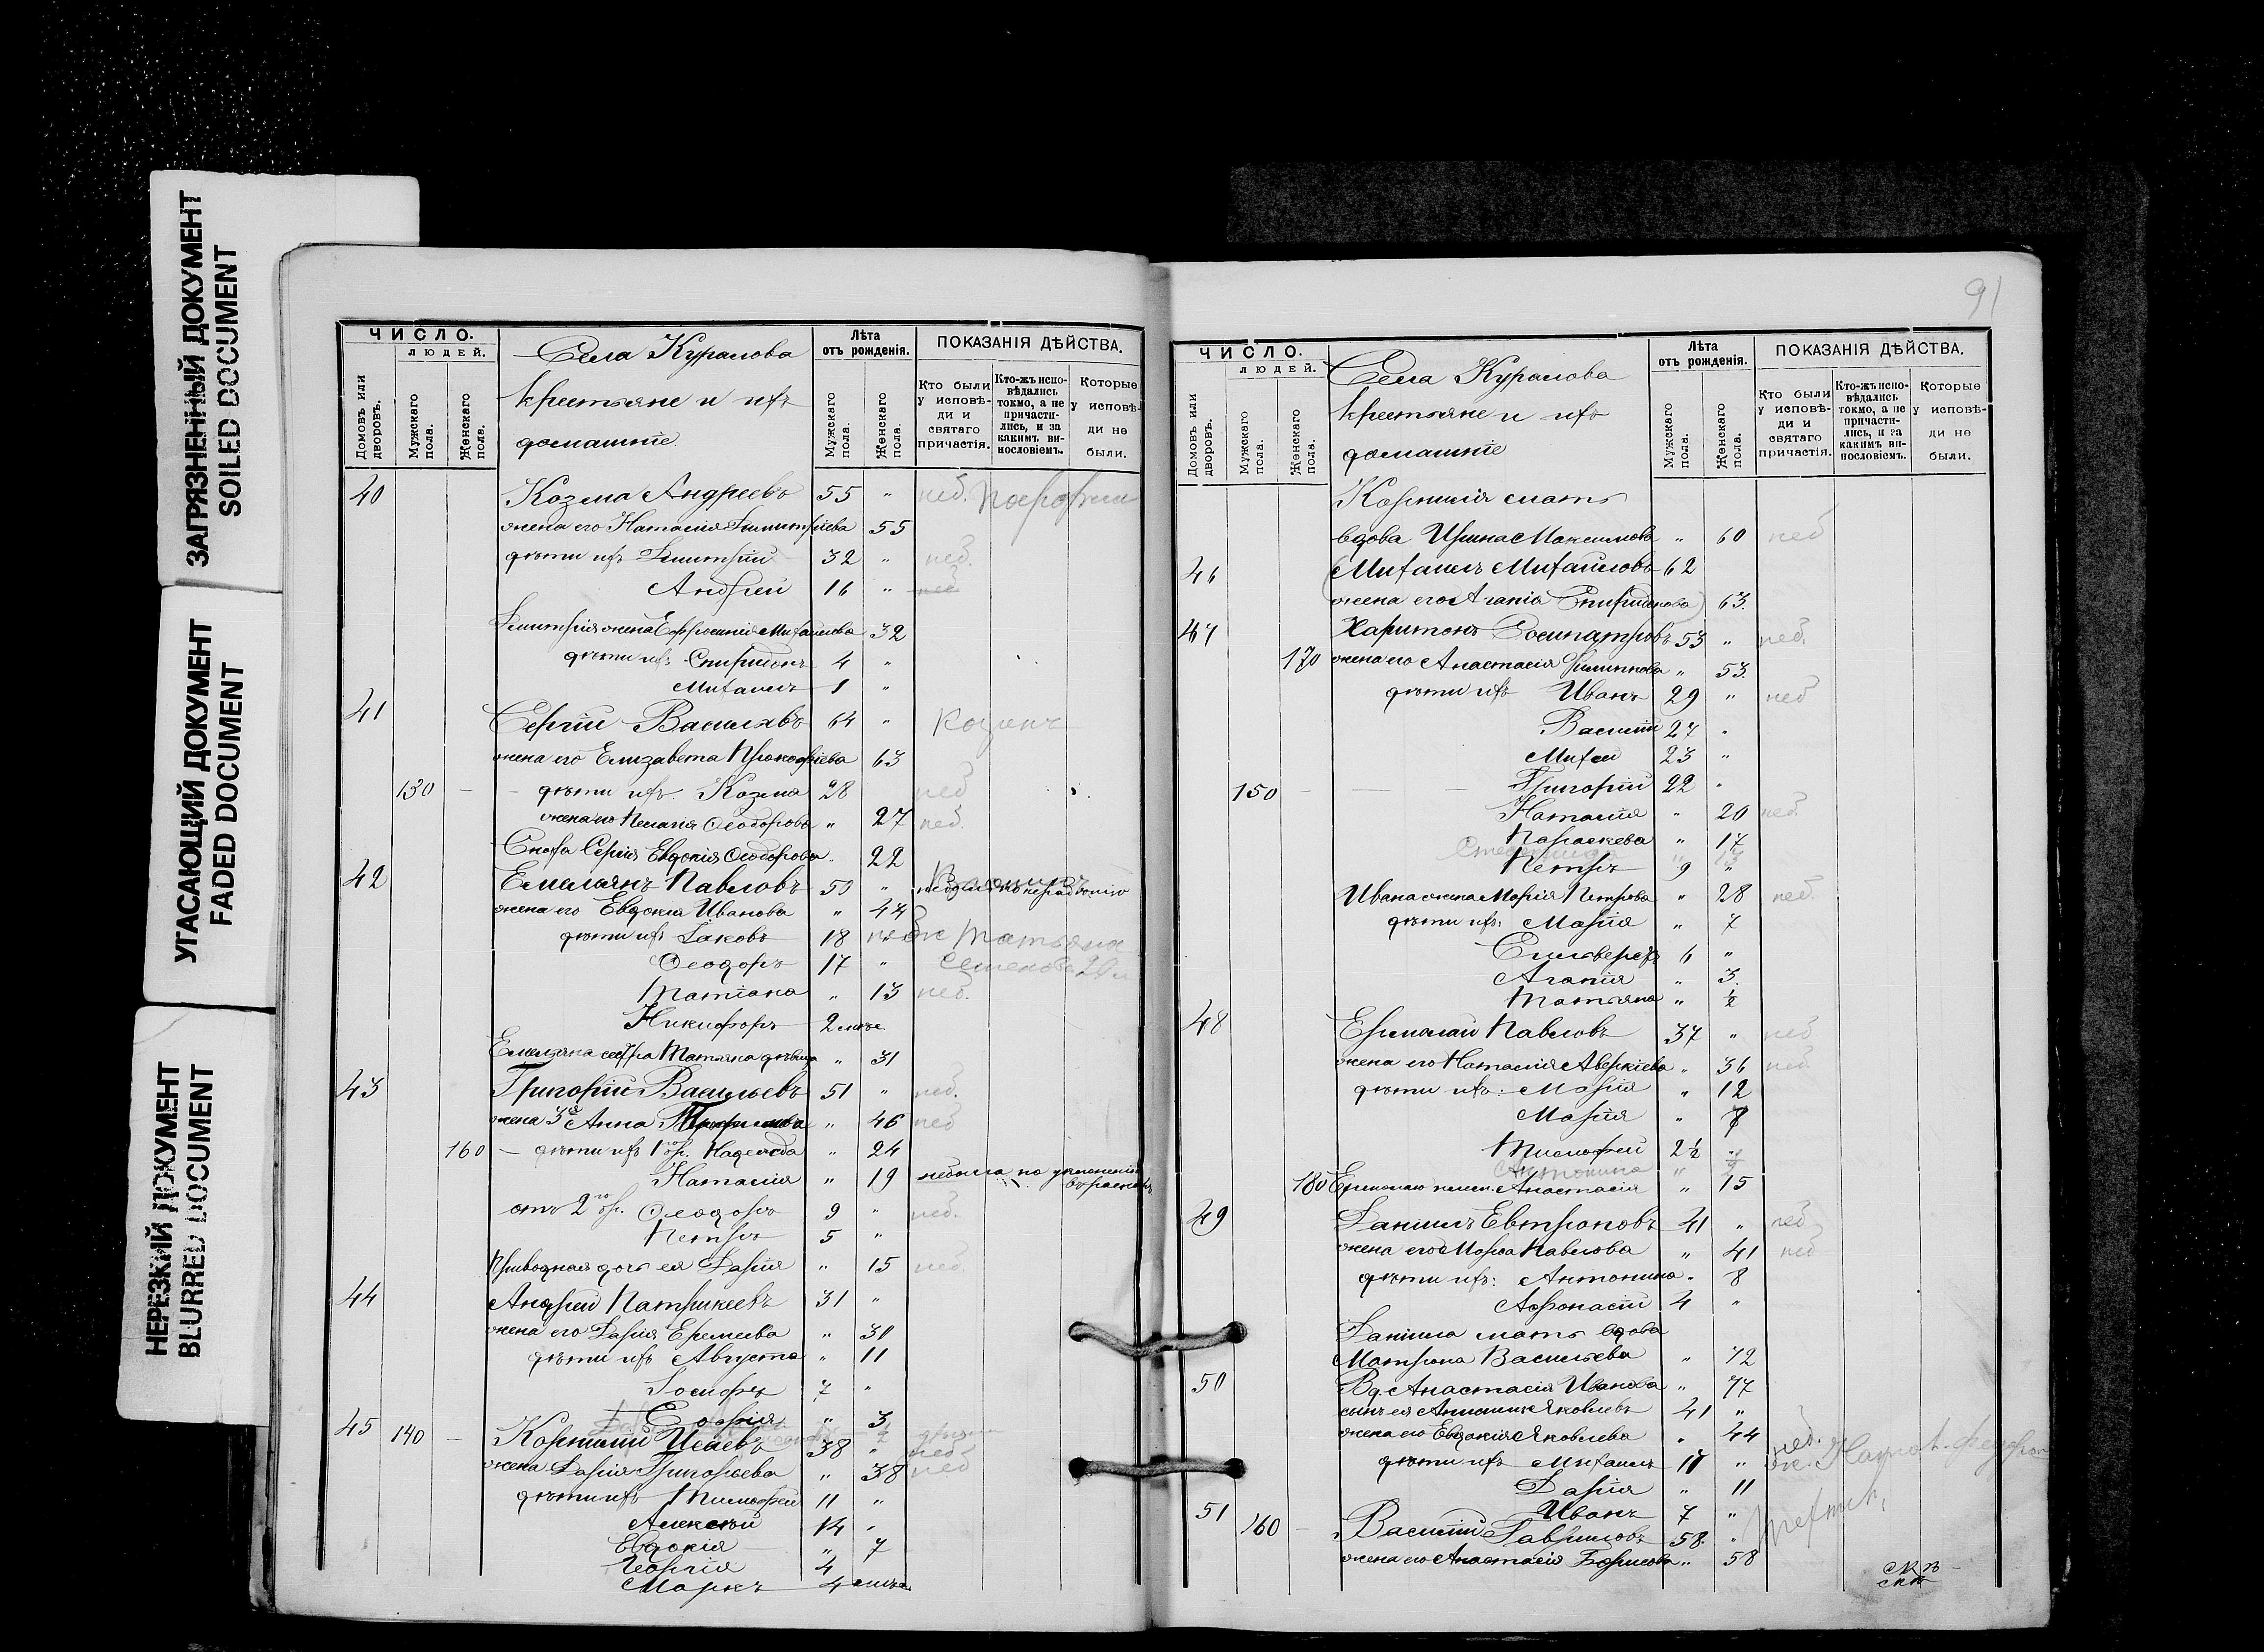 ЗАГРЯЗНЕННЫЙ ДОКУМЕНТ
SOILED DOCUMENT
УГАСАЮЩИЙ ДОКУМЕНТ
FADED DOCUMENT
НЕРЕЗКИЙ ДОКУМЕНТ
BLURRED DOCUMENT
ЧИСЛО.
ЛЮДЕЙ.
Домовъ или дворовъ.
Мужскаго пола.
Женскаго пола.
Села Куралова
крестьяне и ихъ
домашніе.
Лѣта
отъ рожденія.
Мужскаго пола.
Женскаго пола.
ПОКАЗАНІЯ ДѢЙСТВА.
Кто были у исповѣди и святаго причастія.
Кто-жъ исповѣдались токмо, а не причастились, и за какимъ винословіемъ.
Которые у исповѣди не были.
40 Козма Андреевъ 55 " неб.
жена его Наталія Димитріева 55
дѣти ихъ Димитрій 32 " неб.
Андрей 16 " неб
Димитрія жена Ефросинія Михаилова 32
дѣти ихъ Спиридонъ 4 "
Михаилъ 1 "
41 Сергій Васильевъ 64 "
жена его Елизавета Прокофіева 63
130 — дѣти ихъ. Козма 28 неб
жена его Пелагія Ѳеодорова " 27 неб.
Сноха Сергія Евдокія Ѳеодорова " 22
42 Емельянъ Павловъ 50 "
жена его Евдокия Иванова " 44
дѣти ихъ Іаковъ 18 Татьяна
Ѳеодоръ 17 " Семенова 20
Татіана " 13 неб.
Никифоръ 2 мѣс.
Емельяна сестра Татьяна дѣвица " 31
43 Григорій Васильевъ 51 " неб.
жена 3я Анна " 46 неб
160 — дѣти ихъ 1 бр. Надежда " 24
Наталія " 19 небыла по уклоненію
въ расколъ
отъ 2го бр. Ѳеодоръ 9 " неб.
Петръ 5 "
Приводная дочь ея Дарія " 15 неб.
44 Андрей Патрикеевъ 31 "
жена его Дарія Еремеева " 30
дѣти ихъ Августа " 11
Іосифъ 7 "
Софія " 3
45 140 — Корнилій Исаевъ 38 " неб
жена Дарія Григорьева " 38 неб
дѣти ихъ Тимофей 11 "
Алексѣй 14 "
Евдокія " 7
Георгій 4
Маркъ 4 мѣс.
91
ЧИСЛО.
ЛЮДЕЙ.
Домовъ или дворовъ.
Мужскаго пола.
Женскаго пола.
Села Куралова
крестьяне и ихъ
домашніе
Лѣта
отъ рожденія.
Мужскаго пола.
Женскаго пола.
ПОКАЗАНІЯ ДѢЙСТВА.
Кто были у исповѣди и святаго причастія.
Кто-жъ исповѣдались токмо, а не причастились, и за какимъ винословіемъ.
Которые у исповѣди не были.
Корнилія мать
вдова Ирина Максимова " 60 неб
46 Михаилъ Михайловъ 62
жена его Агапія Спиридонова 63.
47 Харитонъ Сосипатровъ 53 " неб.
170 жена его Анастасія Филиппова " 53.
дѣти ихъ Иванъ 29 " неб
Василій 27 "
Михей 23 "
150 — Григорій 22 "
Наталія " 20 неб.
Параскева " 17
Петръ 9 "
Ивана жена Марія Петрова " 28 неб.
дѣти ихъ: Марія " 7
Елисаверъ 6 "
Агапія " 3.
Татьяна " ½
48 Ермолай Павловъ 37 " неб
жена его Наталія Аверкіева " 36 неб
дѣти ихъ: Марія " 12
Марія " 8
Тимофей 2½ "
Антонина "
180 Ермолаю племян. Анастасія " 15
49 Даніилъ Евтроповъ 41 " неб
жена его Марѳа Павлова " 41 неб
дѣти ихъ: Антонина " 8
Афонасій 4 "
Даніила мать вдова
Матрона Васильева " 72
50 Вд. Анастасія Иванова " 77
сынъ ея Яковлевъ 41 "
жена его Евдокія Яковлева " 44
дѣти ихъ Михаилъ 17 " неб.
Дарія " 11
Иванъ 7 "
51 160 — Василій Гавриловъ 58. "
жена его Анастасія Борисова " 58